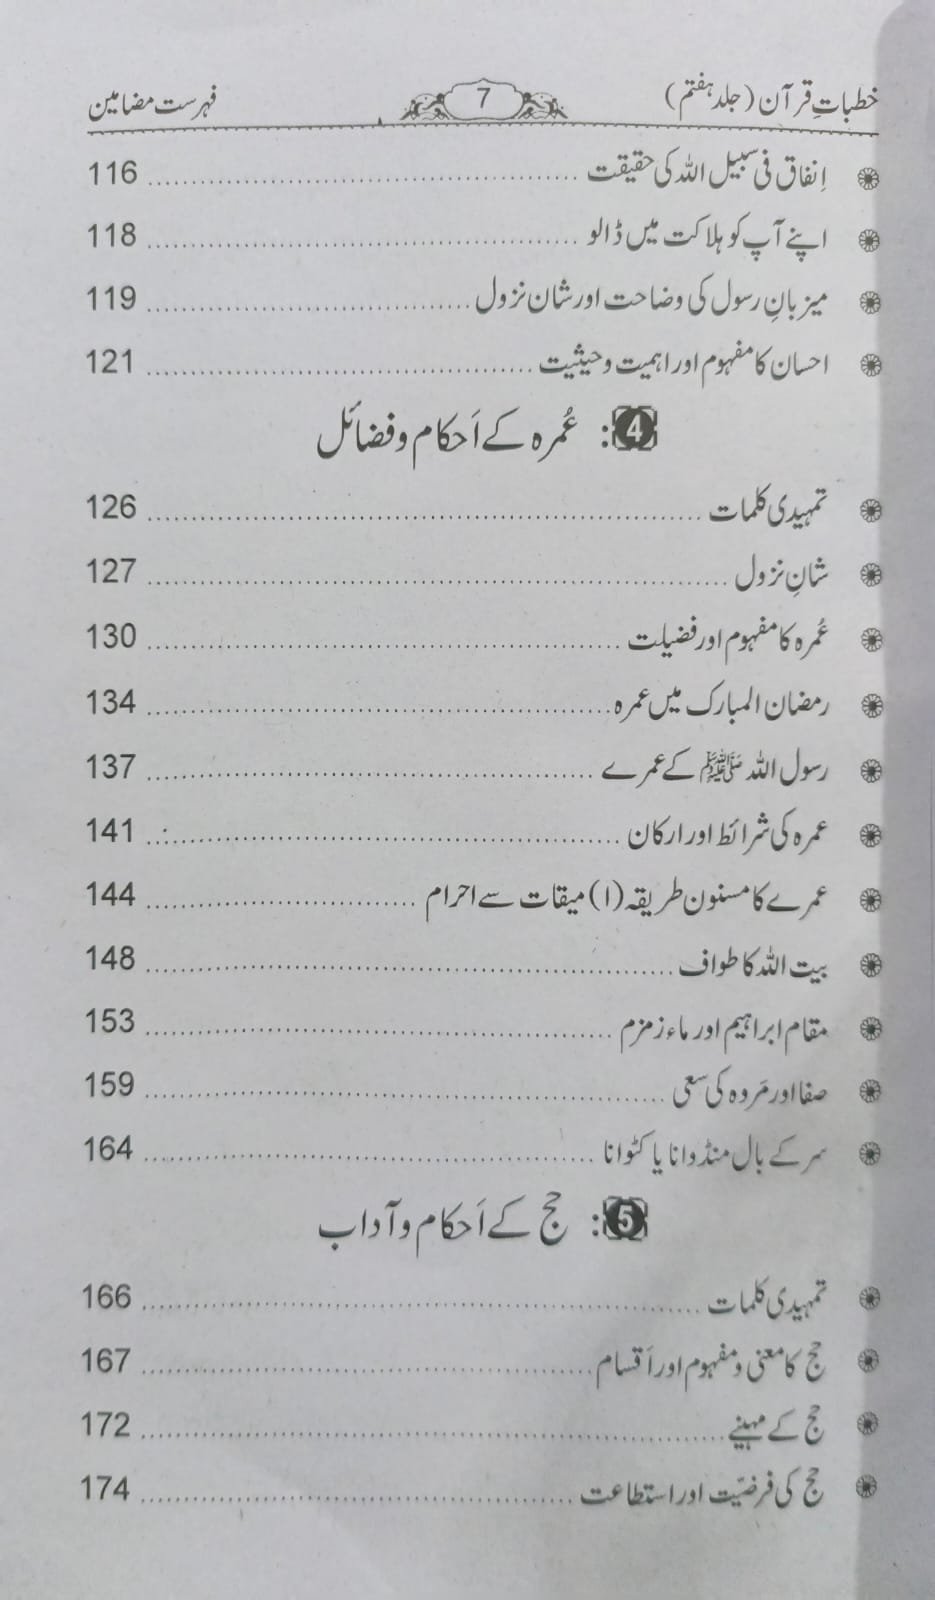 خطباتِ قرآن (جلد ہفتم) 7 فہرست مضامین
اِنفاق فی سبیل اللہ کی حقیقت ........ 116
اپنے آپ کو ہلاکت میں ڈالو ........ 118
میزبانِ رسول کی وضاحت اور شان نزول ........ 119
احسان کا مفہوم اور اہمیت و حیثیت ........ 121
4: عُمرہ کے اَحکام و فضائل
تمہیدی کلمات ........ 126
شانِ نزول ........ 127
عُمرہ کا مفہوم اور فضیلت ........ 130
رمضان المبارک میں عمرہ ........ 134
رسول اللہ ﷺ کے عمرے ........ 137
عمرہ کی شرائط اور ارکان ........ 141
عمرے کا مسنون طریقہ (۱) میقات سے احرام ........ 144
بیت اللہ کا طواف ........ 148
مقام ابراہیم اور ماء زمزم ........ 153
صفا اور مَروہ کی سعی ........ 159
سر کے بال منڈوانا یا کٹوانا ........ 164
5: حج کے اَحکام و آداب
تمہیدی کلمات ........ 166
حج کا معنی و مفہوم اور اَقسام ........ 167
حج کے مہینے ........ 172
حج کی فرضیّت اور استطاعت ........ 174